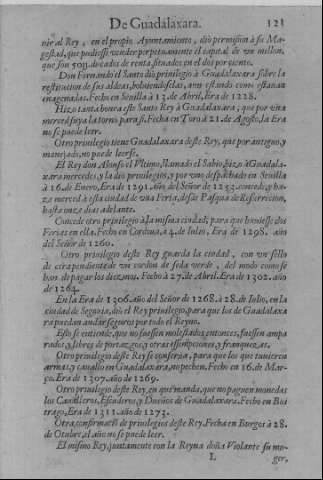 De Guadalaxara. 121
uir al Rey, en el propio Ayuntamiento, dio permision à su Ma-
gestad, que pudiesse vender perpetuamente el capital de un millon,
que son 50y. ducados de renta, situados en el dos por ciento.
Don Fernando el Santo dio privilegio à Guadalaxara sobre la
restitucion de sus aldeas, bolviendoselas, aun estando como estavan
enagenadas. Fecho en Sevilla à 13. de Abril, Era de 1228.
Hizo tanta honra este Santo Rey à Guadalaxara, que por una
merced suya la tornò para si. Fecha en Toro à 21. de Agosto, la Era
no se puede leer.
Otro privilegio tiene Guadalaxara deste Rey, que por antiguo, y
manejado, no puede leerse.
El Rey don Alonso el Vltimo, llamado el Sabio, hizo à Guadala-
xara mercedes, y la dio privilegios, y por uno despachado en Sevilla
à 16. de Enero, Era de 1291. año del Señor de 1253. concede, y ha-
ze merced à esta ciudad de una Feria, desde Pasqua de Resurreccion,
hasta onze dias adelante.
Concede otro privilegio à la misma ciudad, para que huviesse dos
Ferias en ella. Fecho en Cordova, à 4. de Iulio, Era de 1298. año
del Señor de 1260.
Otro privilegio deste Rey guarda la ciudad, con un sello
de cera pendiente de un cordon de seda verde, del modo como se
han de pagar los diezmos. Fecho à 27. de Abril. Era de 1302. año
de 1264.
En la Era de 1306. año del Señor de 1268. à 28. de Iulio, en la
ciudad de Segovia, dio el Rey privilegio, para que los de Guadalaxa
ra puedan andar seguros por todo el Reyno.
Esto se entiende, que no fuessen molestados entonces, fuessen ampa
rados, y libres de portazgos, y otras essempciones, y franquezas.
Otro privilegio deste Rey se conserva, para que los que tuvieren
armas, y cavallo en Guadalaxara, no pechen. Fecho en 16. de Mar-
ço. Era de 1307. año de 1269.
Otro privilegio deste Rey, en que manda, que no paguen monedas
los Cavalleros, Escuderos, y Dueños de Guadalaxara. Fecho en Bui
trago, Era de 1311. año de 1273.
Otra confirmaciō de privilegios deste Rey. Fecha en Burgos à 28.
de Otubre, el año no se puede leer.
El mismo Rey, juntamente con la Reyna doña Violante su mu-
L ger,